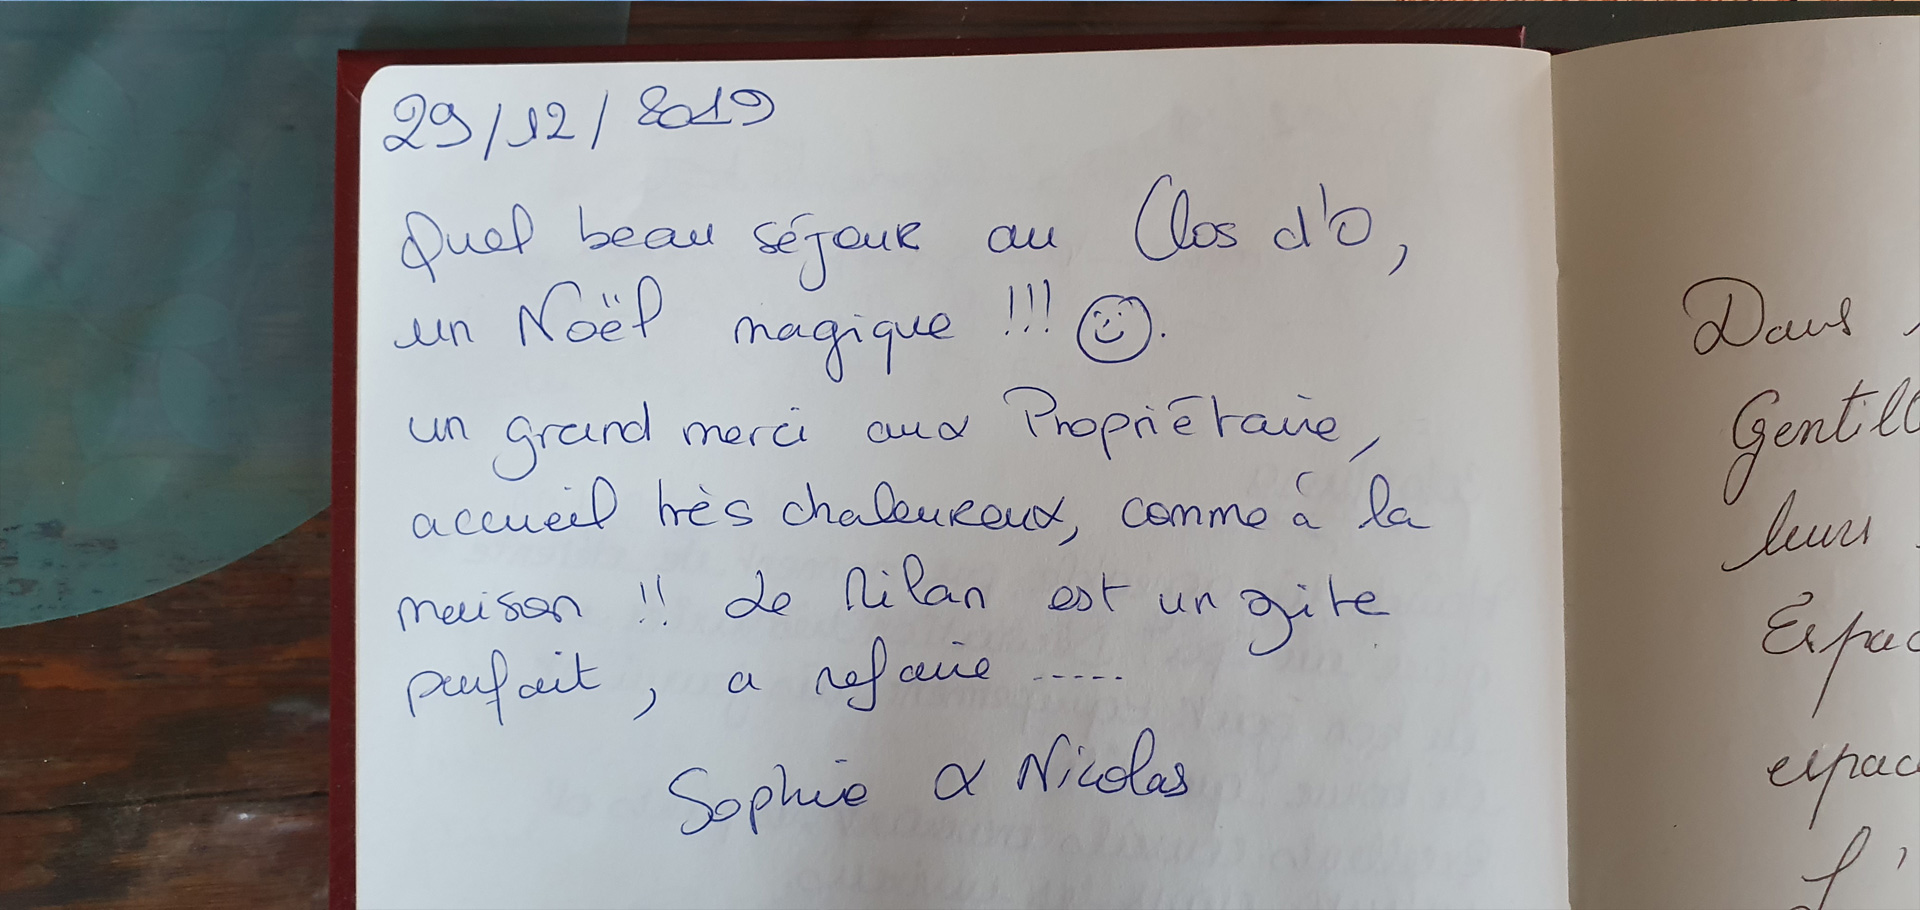 29/12/2019
Quel beau séjour au Clos d'O,
un Noël magique !!! ☺.
un grand merci aux Propriétaire,
accueil très chaleureux, comme à la
maison !! Le Milan est un gite
parfait, a refaire .....
Sophie & Nicolas
Dans
Gentill
leurs
Espac
espac